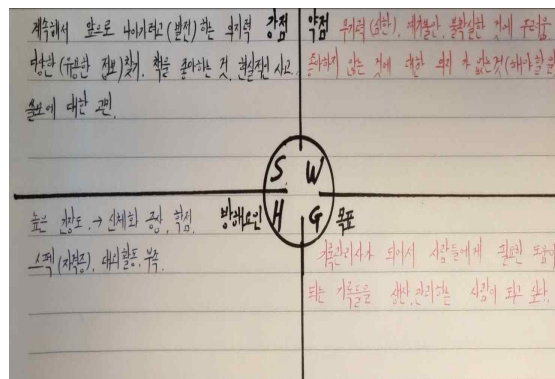 계속해서 앞으로 나아가려고 (발전) 하는 의지력 강점
다양한 (유용한 정보) 찾기, 책을 좋아하는 것, 현실적인 사고,
진로에 대한 고민.
약점 무기력 (심한), 대기불안, 불확실한 것에 두려움.
좋아하지 않는 것에 대한 의지가 없는것 (해야할
S W
H G
높은 긴장도. → 신체화 증상, 학점 방해요인
스펙 (자격증), 대외활동, 부족.
목표
기록관리사가 되어서 사람들에게 필요한 도움이
되는 기록들을 생산, 관리하는 사람이 되고 싶다.